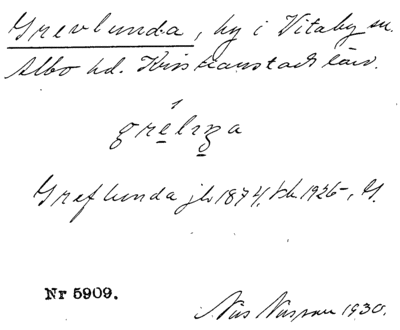 Grevlunda, by i Vitaby sn.
Albo hd. Kristianstads län.
grèlṇa
Greflunda jb 1874, tk 1926, G.
Nr 5909.
Nils 1930.